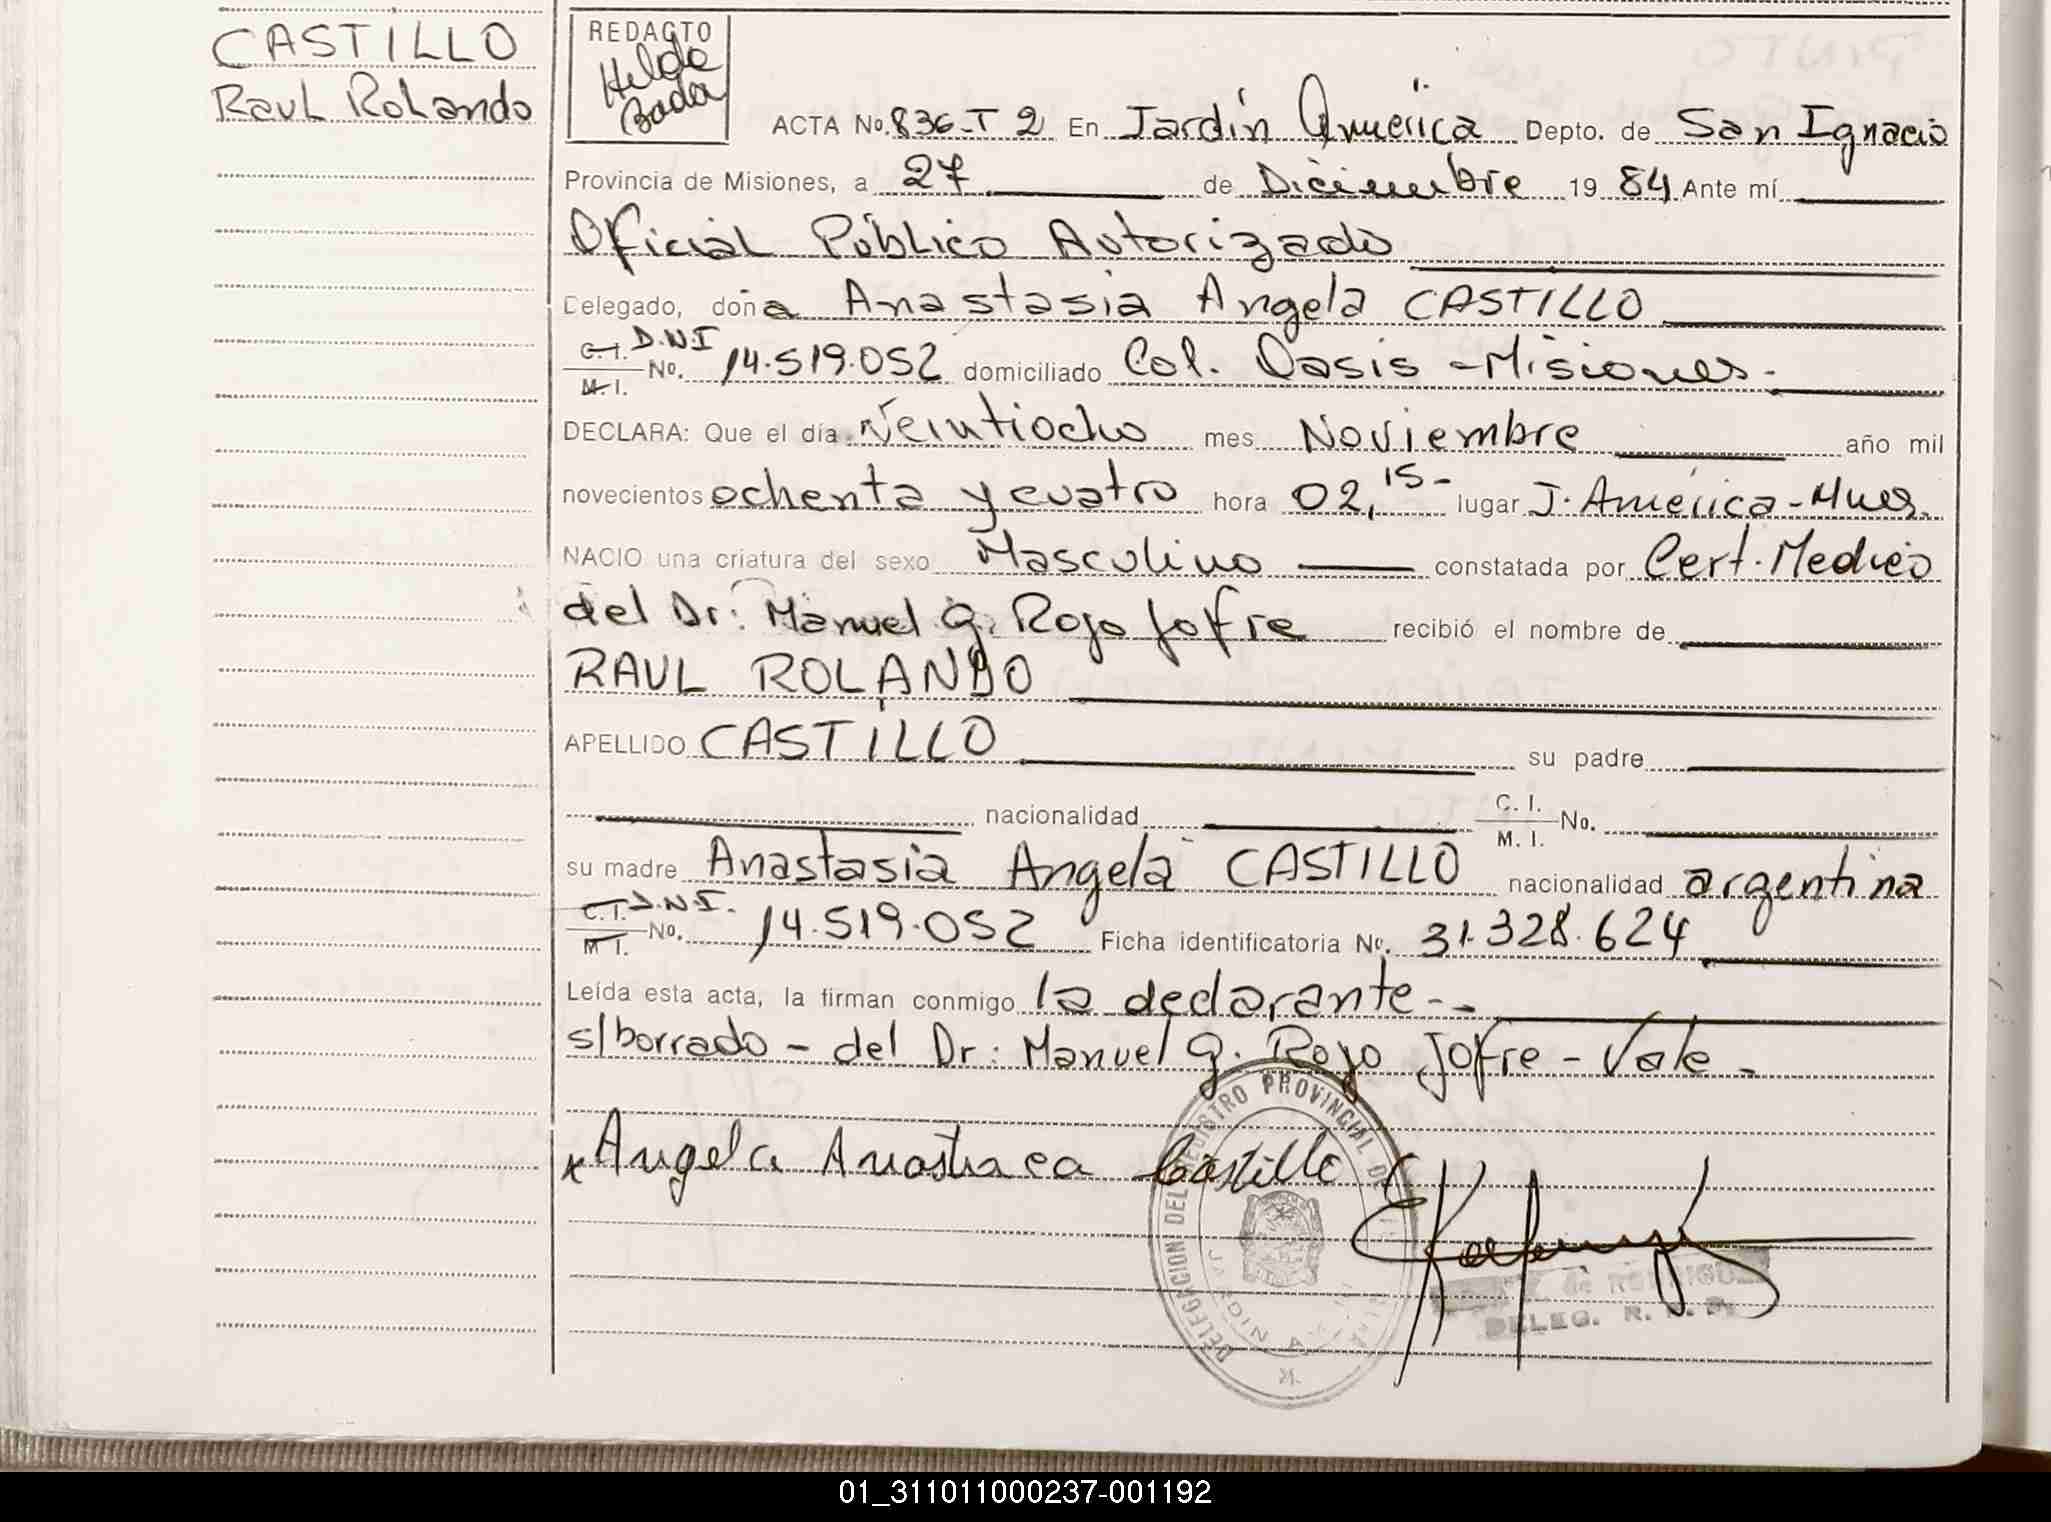 CASTILLO
Raul Rolando
REDACTO
Hilda
Bada
ACTA No. 836-T 2 En Jardín América Depto. de San Ignacio
Provincia de Misiones, a 27 de Diciembre 1984 Ante mí
Oficial Público Autorizado
Delegado, doña Anastasia Angela CASTILLO
C.I. D.N.I
M.I. No. 14.519.052 domiciliado Col. Oasis - Misiones.
DECLARA: Que el día Veintiocho mes Noviembre año mil
novecientos ochenta y cuatro hora 02,15- lugar J. América-Mnes.
NACIO una criatura del sexo Masculino constatada por Cert. Medico
del Dr: Manuel G. Rojo Jofre recibió el nombre de
RAUL ROLANDO
APELLIDO CASTILLO su padre
nacionalidad C. I. M. I. No.
su madre Anastasia Angela CASTILLO nacionalidad argentina
C.I. D.N.I.
M.I. No. 14.519.052 Ficha identificatoria No. 31.328.624
Leída esta acta, la firman conmigo la declarante--
s/borrado - del Dr: Manuel G. Rojo Jofre - Vale -
x Angela Castillo
DELEGACION DEL REGISTRO PROVINCIAL DE
JARDIN
de RODRIGUEZ
DELEG. R. P.
01_311011000237-001192